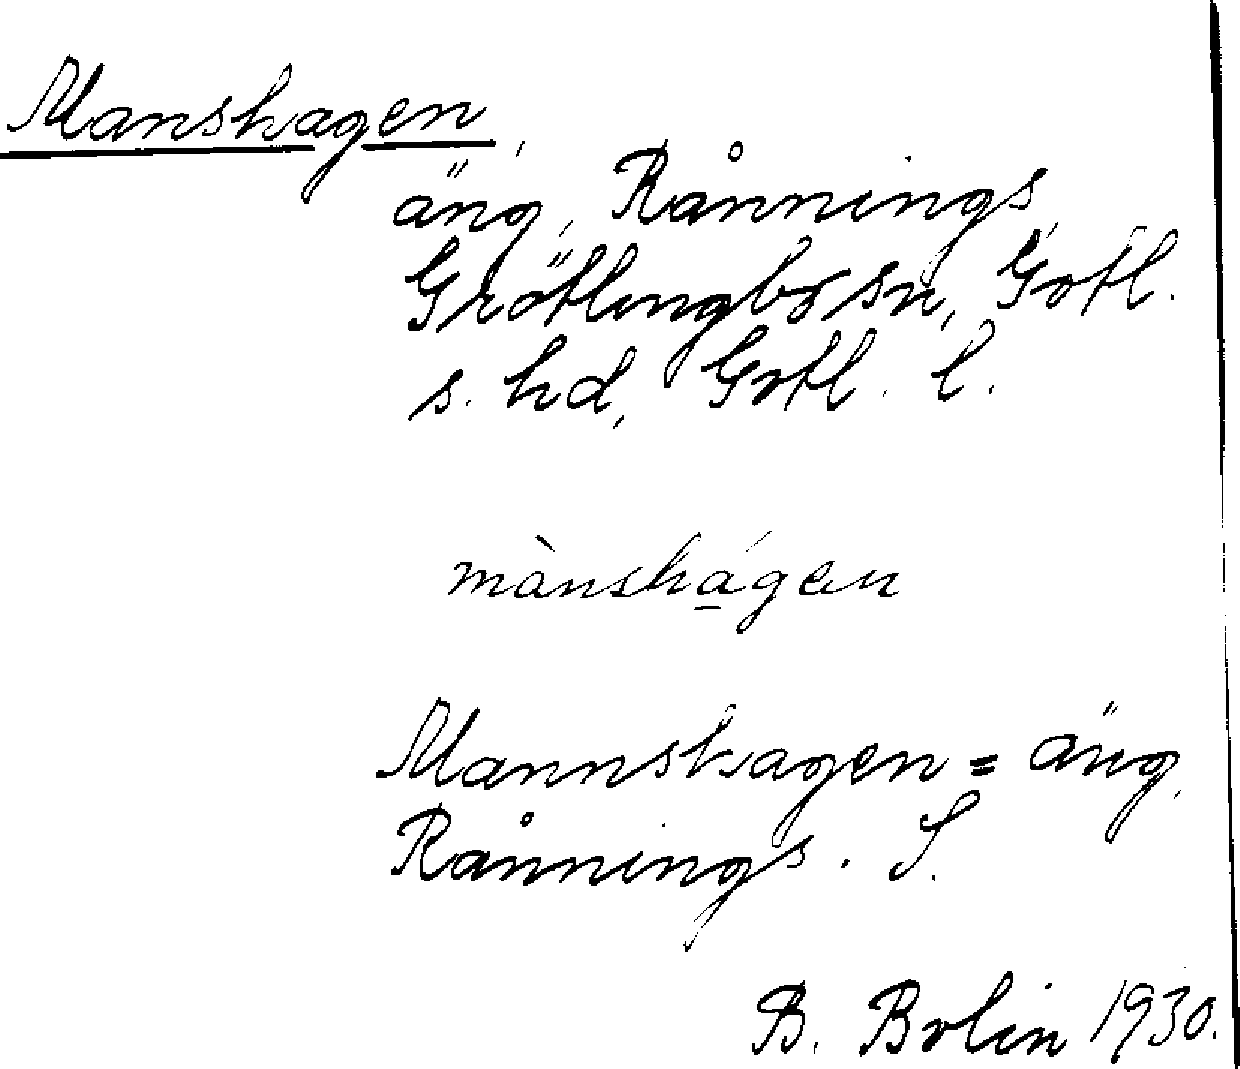 Manshagen,
äng, Rånnings,
Grötlingbo sn, Gotl.
s. hd, Gotl. l.
mànshá̱gen
Mannshagen = äng,
Rånnings. S.
B. Bolin 1930.